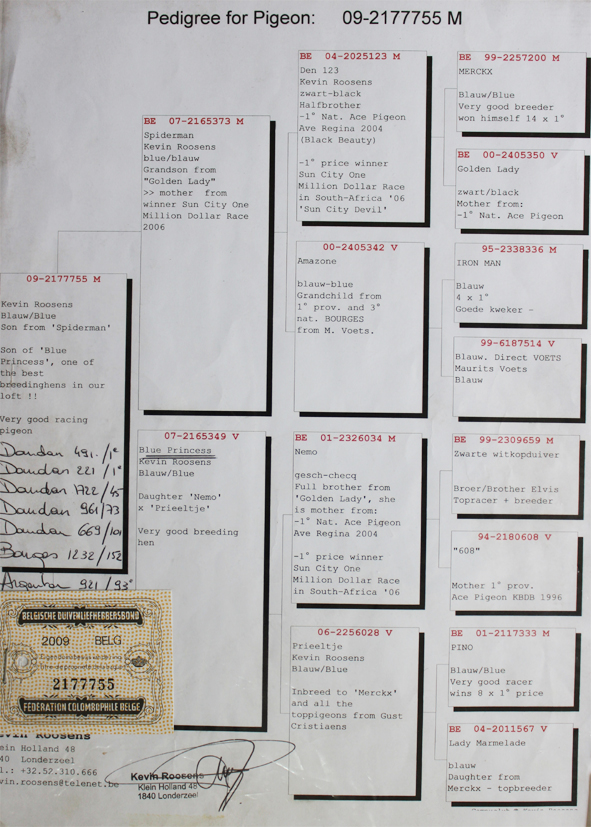 Pedigree for Pigeon: 09-2177755 M
09-2177755 M
Kevin Roosens
Blauw/Blue
Son from 'Spiderman'
Son of 'Blue
Princess', one of
the best
breedinghens in our
loft !!
Very good racing
pigeon
Dourdan 491./1e
Dourdan 221/1e
Dourdan 1722/45
Dourdan 961/73
Dourdan 669/101
Bourges 1232/152
Argenton 921/93e
BE 07-2165373 M
Spiderman
Kevin Roosens
blue/blauw
Grandson from
"Golden Lady"
>> mother from
winner Sun City One
Million Dollar Race
2006
07-2165349 V
Blue Princess
Kevin Roosens
Blauw/Blue
Daughter 'Nemo'
x 'Prieeltje'
Very good breeding
hen
BE 04-2025123 M
Den 123
Kevin Roosens
zwart-black
Halfbrother
-1° Nat. Ace Pigeon
Ave Regina 2004
(Black Beauty)
-1° price winner
Sun City One
Million Dollar Race
in South-Africa '06
'Sun City Devil'
00-2405342 V
Amazone
blauw-blue
Grandchild from
1° prov. and 3°
nat. BOURGES
from M. Voets.
BE 01-2326034 M
Nemo
gesch-checq
Full brother from
'Golden Lady', she
is mother from:
-1° Nat. Ace Pigeon
Ave Regina 2004
-1° price winner
Sun City One
Million Dollar Race
in South-Africa '06
06-2256028 V
Prieeltje
Kevin Roosens
Blauw/Blue
Inbreed to 'Merckx'
and all the
toppigeons from Gust
Cristiaens
BE 99-2257200 M
MERCKX
Blauw/Blue
Very good breeder
won himself 14 x 1°
BE 00-2405350 V
Golden Lady
zwart/black
Mother from:
-1° Nat. Ace Pigeon
95-2338336 M
IRON MAN
Blauw
4 x 1°
Goede kweker -
99-6187514 V
Blauw. Direct VOETS
Maurits Voets
Blauw
BE 99-2309659 M
Zwarte witkopduiver
Broer/Brother Elvis
Topracer + breeder
94-2180608 V
"608"
Mother 1° prov.
Ace Pigeon KBDB 1996
BE 01-2117333 M
PINO
Blauw/Blue
Very good racer
wins 8 x 1° price
BE 04-2011567 V
Lady Marmelade
blauw
Daughter from
Merckx - topbreeder
BELGISCHE DUIVENLIEFHEBBERSBOND
2009 BELG
2177755
FEDERATION COLOMBOPHILE BELGE
Kevin Roosens
ein Holland 48
40 Londerzeel
l.: +32.52.310.666
vin.roosens@telenet.be
Kevin Roosens
Klein Holland 48
1840 Londerzeel